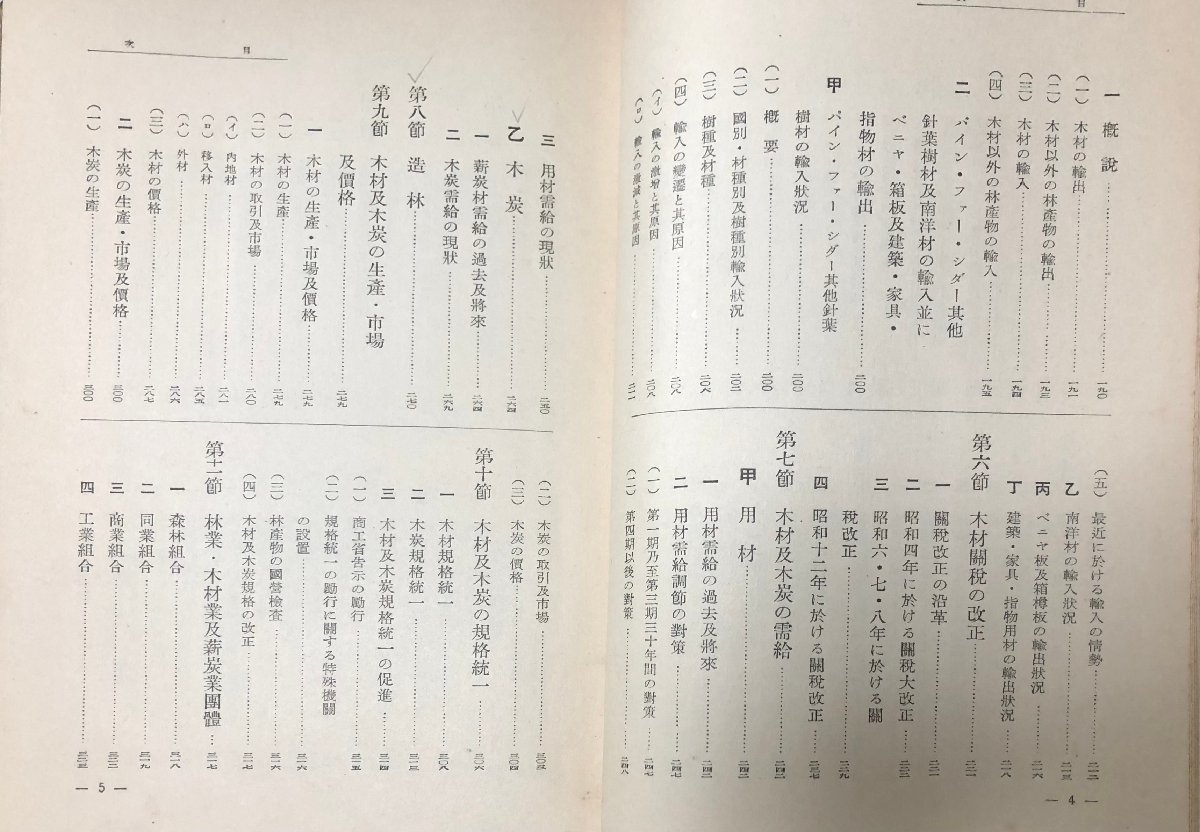 目次
一 概說………一九〇
(一) 木材の輸出………一九一
(二) 木材以外の林產物の輸出………一九三
(三) 木材の輸入………一九四
(四) 木材以外の林產物の輸入………一九五
二 パイン・ファー・シダー其他
針葉樹材及南洋材の輸入並に
ベニヤ・箱板及建築・家具・
指物材の輸出………二〇〇
甲 パイン・ファー・シダー其他針葉
樹材の輸入狀況………二〇〇
(一) 槪要………二〇〇
(二) 國別・材種別及樹種別輸入狀況………二〇二
(三) 樹種及材種………二〇六
(四) 輸入の變遷と其原因………二〇八
(イ) 輸入の激增と其原因………二〇八
(ロ) 輸入の激減と其原因………二一一
(五) 最近に於ける輸入の情勢………二一二
乙 南洋材の輸入狀況………二一三
丙 ベニヤ板及箱樽板の輸出狀況………二一六
丁 建築・家具・指物用材の輸出狀況………二一八
第六節 木材關稅の改正………二二一
一 關稅改正の沿革………二二一
二 昭和四年に於ける關稅大改正………二二二
三 昭和六・七・八年に於ける關
稅改正………二二九
四 昭和十二年に於ける關稅改正………二三七
第七節 木材及木炭の需給………二四二
甲 用材………二四二
一 用材需給の過去及將來………二四二
二 用材需給調節の對策………二四七
(一) 第一期乃至第三期三十年間の對策………二四七
(二) 第四期以後の對策………二四八
— 4 —
目次
三 用材需給の現狀………二五〇
乙 木炭………二六四
一 薪炭材需給の過去及將來………二六四
二 木炭需給の現狀………二六九
第八節 造林………二七〇
第九節 木材及木炭の生產・市場
及價格………二七九
一 木材の生產・市場及價格………二七九
(一) 木材の生產………二七九
(二) 木材の取引及市場………二八〇
(イ) 內地材………二八一
(ロ) 移入材………二八五
(ハ) 外材………二八六
(三) 木材の價格………二八七
二 木炭の生產・市場及價格………三〇〇
(一) 木炭の生產………三〇〇
(二) 木炭の取引及市場………三〇三
(三) 木炭の價格………三〇四
第十節 木材及木炭の規格統一………三〇六
一 木材規格統一………三〇八
二 木炭規格統一………三一三
三 木材及木炭規格統一の促進………三一四
(一) 商工省吿示の勵行………三一五
(二) 規格統一の勵行に關する特殊機關
の設置………三一六
(三) 林產物の國營檢査………三一六
(四) 木材及木炭規格の改正………三一七
第十一節 林業・木材業及薪炭業團體………三一七
一 森林組合………三一八
二 同業組合………三一九
三 商業組合………三二二
四 工業組合………三二三
— 5 —